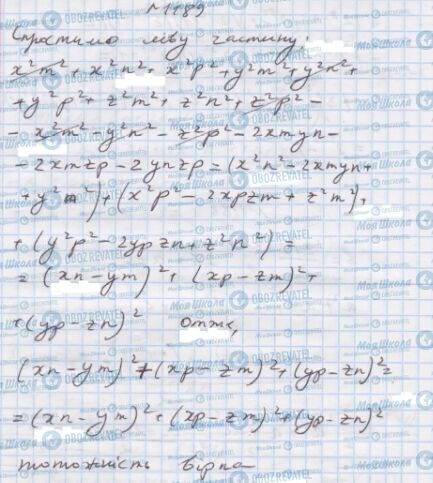 №1189
Спростимо ліву частину:
x²m² + x²n² + x²p² + y²m² + y²n² +
+ y²p² + z²m² + z²n² + z²p² -
- x²m² - y²n² - z²p² - 2xmyn -
- 2xmzp - 2ynzp = (x²n² - 2xmyn +
+ y²m²) + (x²p² - 2xpzm + z²m²) +
+ (y²p² - 2ypzn + z²n²) =
= (xn - ym)² + (xp - zm)² +
+ (yp - zn)² Отже,
(xn - ym)² + (xp - zm)² + (yp - zn)² =
= (xn - ym)² + (xp - zm)² + (yp - zn)²
тотожність вірна